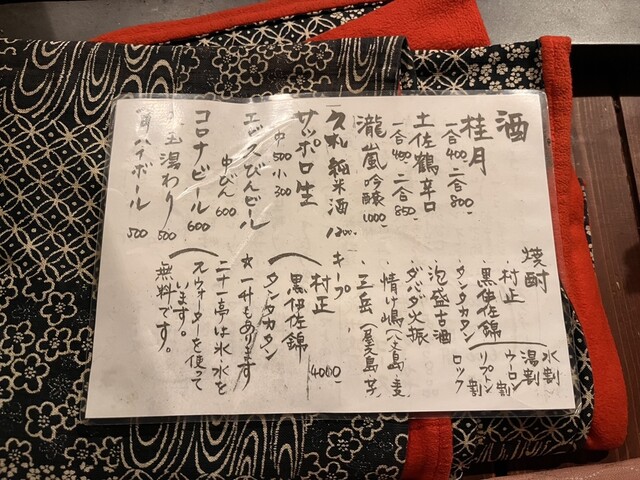 酒
桂月
一合400 二合800
土佐鶴辛口
一合400 二合850
瀧嵐吟醸 1000
久礼 純米酒 1200
サッポロ生
中500 小300
エビスびんビール
中びん600
コロナビール 600
玉湯わり 500
ハイボール 500
焼酎
・村正
・黒伊佐錦
・タンタカタン
水割
湯割
ウーロン割
リプトン割
ロック
・泡盛古酒
・ダバダ火振
・情け嶋(八丈島・麦)
・三岳(屋久島・芋)
キープ
村正
黒伊佐錦
タンタカタン
4000
☆一升もあります
二十一亭は氷、水を
スーウォーターを使て
います。
無料です。